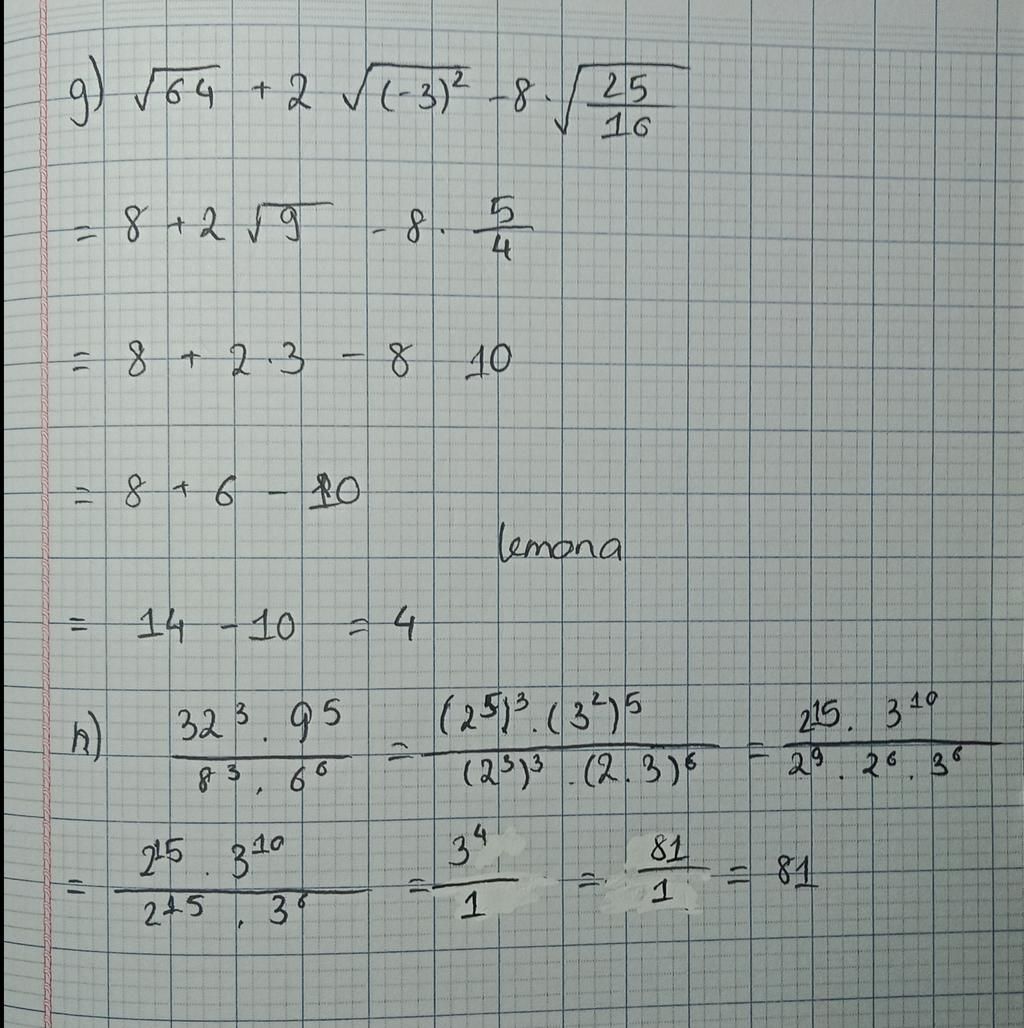 g) √64 + 2 √(-3)² - 8 · √25/16
= 8 + 2 √9 - 8 · 5/4
= 8 + 2 · 3 - 8 10
= 8 + 6 - 10
lemona
= 14 - 10 = 4
h) 32³ · 9⁵ / 8³ · 6⁶ = (2⁵)³ · (3²)⁵ / (2³)³ · (2 · 3)⁶ = 2¹⁵ · 3¹⁰ / 2⁹ · 2⁶ · 3⁶
= 2¹⁵ · 3¹⁰ / 2¹⁵ · 3⁶ = 3⁴/1 = 81/1 = 81